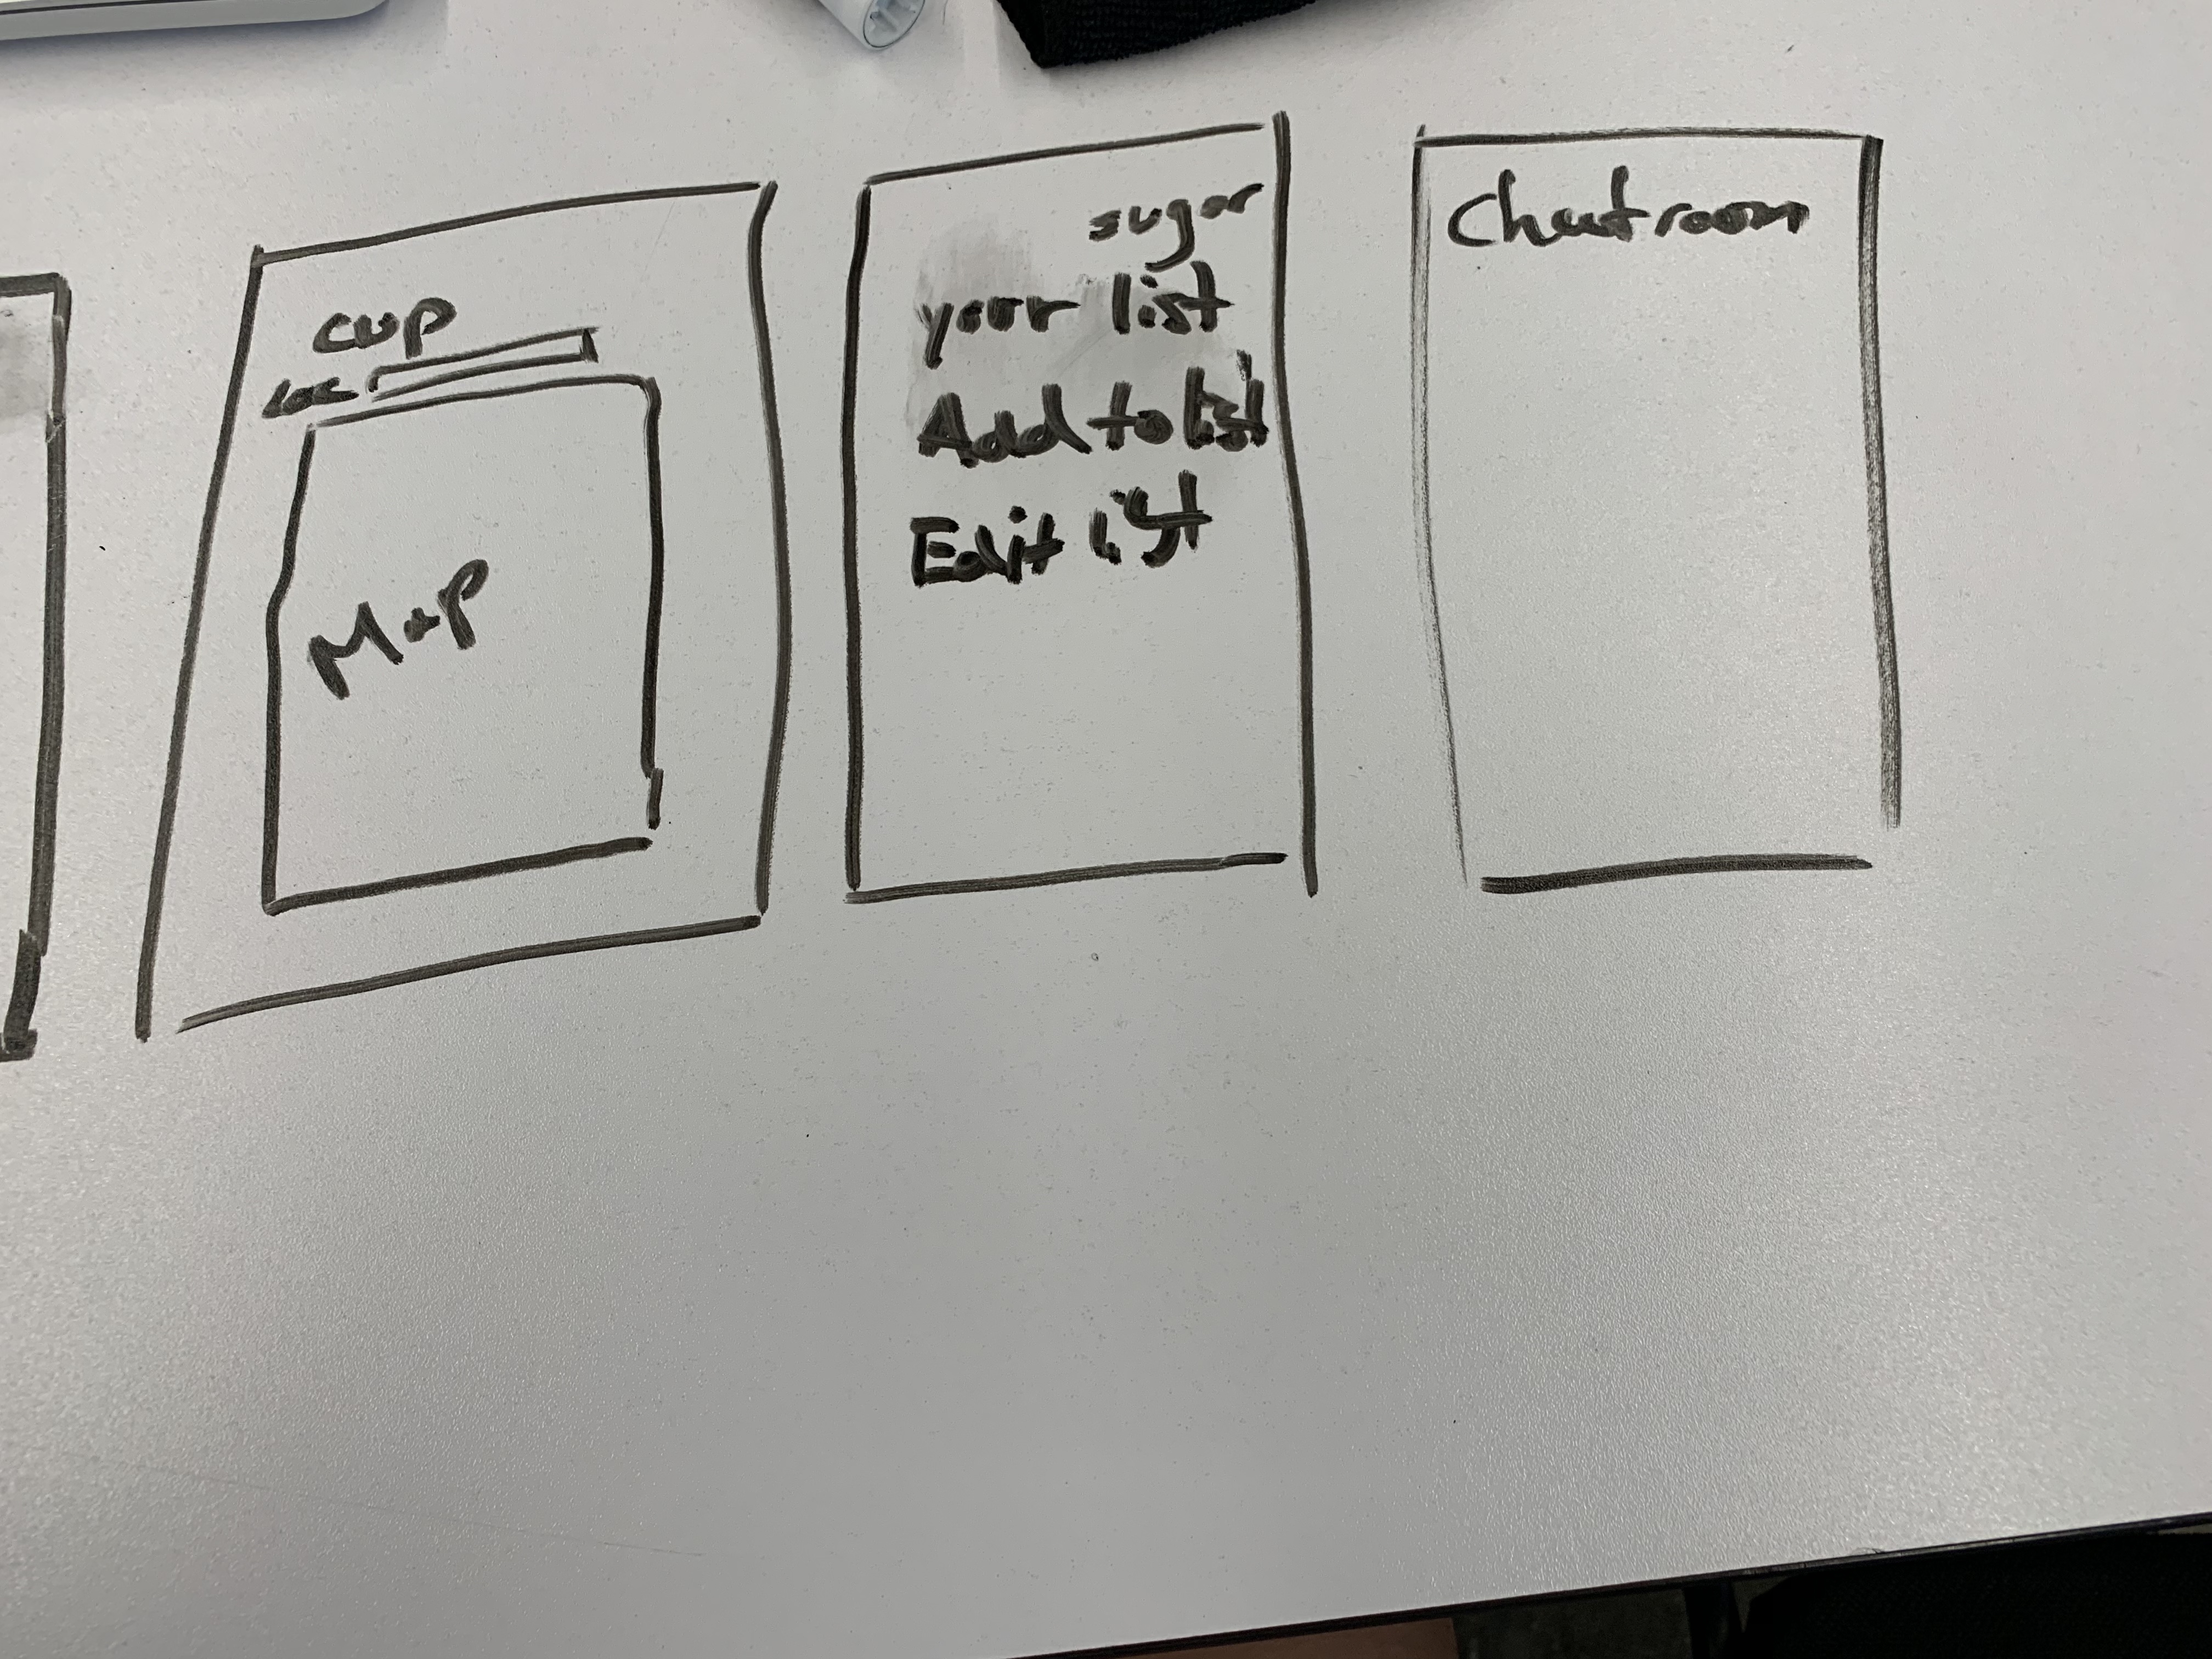 cup
loc
Map
sugar
your list
Add to list
Edit list
Chatroom